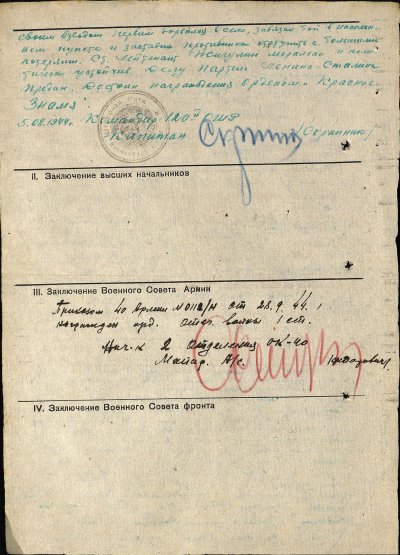 своим взводом первым ворвался в село, завязал бой в населен-
ном пункте и заставил противника отступить с большими
потерями. Ст. лейтенант Жигулин морально и поли-
тически устойчив. Делу Партии Ленина-Сталина
предан. Достоин награждения орденом „Красное
Знамя"
5.08.1944г. Командир 120й ОШР
Капитан /Скрипник/
II. Заключение высших начальников
III. Заключение Военного Совета Армии
Приказом 40 Армии №0112/н от 28.9.44 г.
награжден орд. Отеч. войны 1 ст.
Нач-к 2 отделения ОК-40
Майор А/с.
IV. Заключение Военного Совета фронта